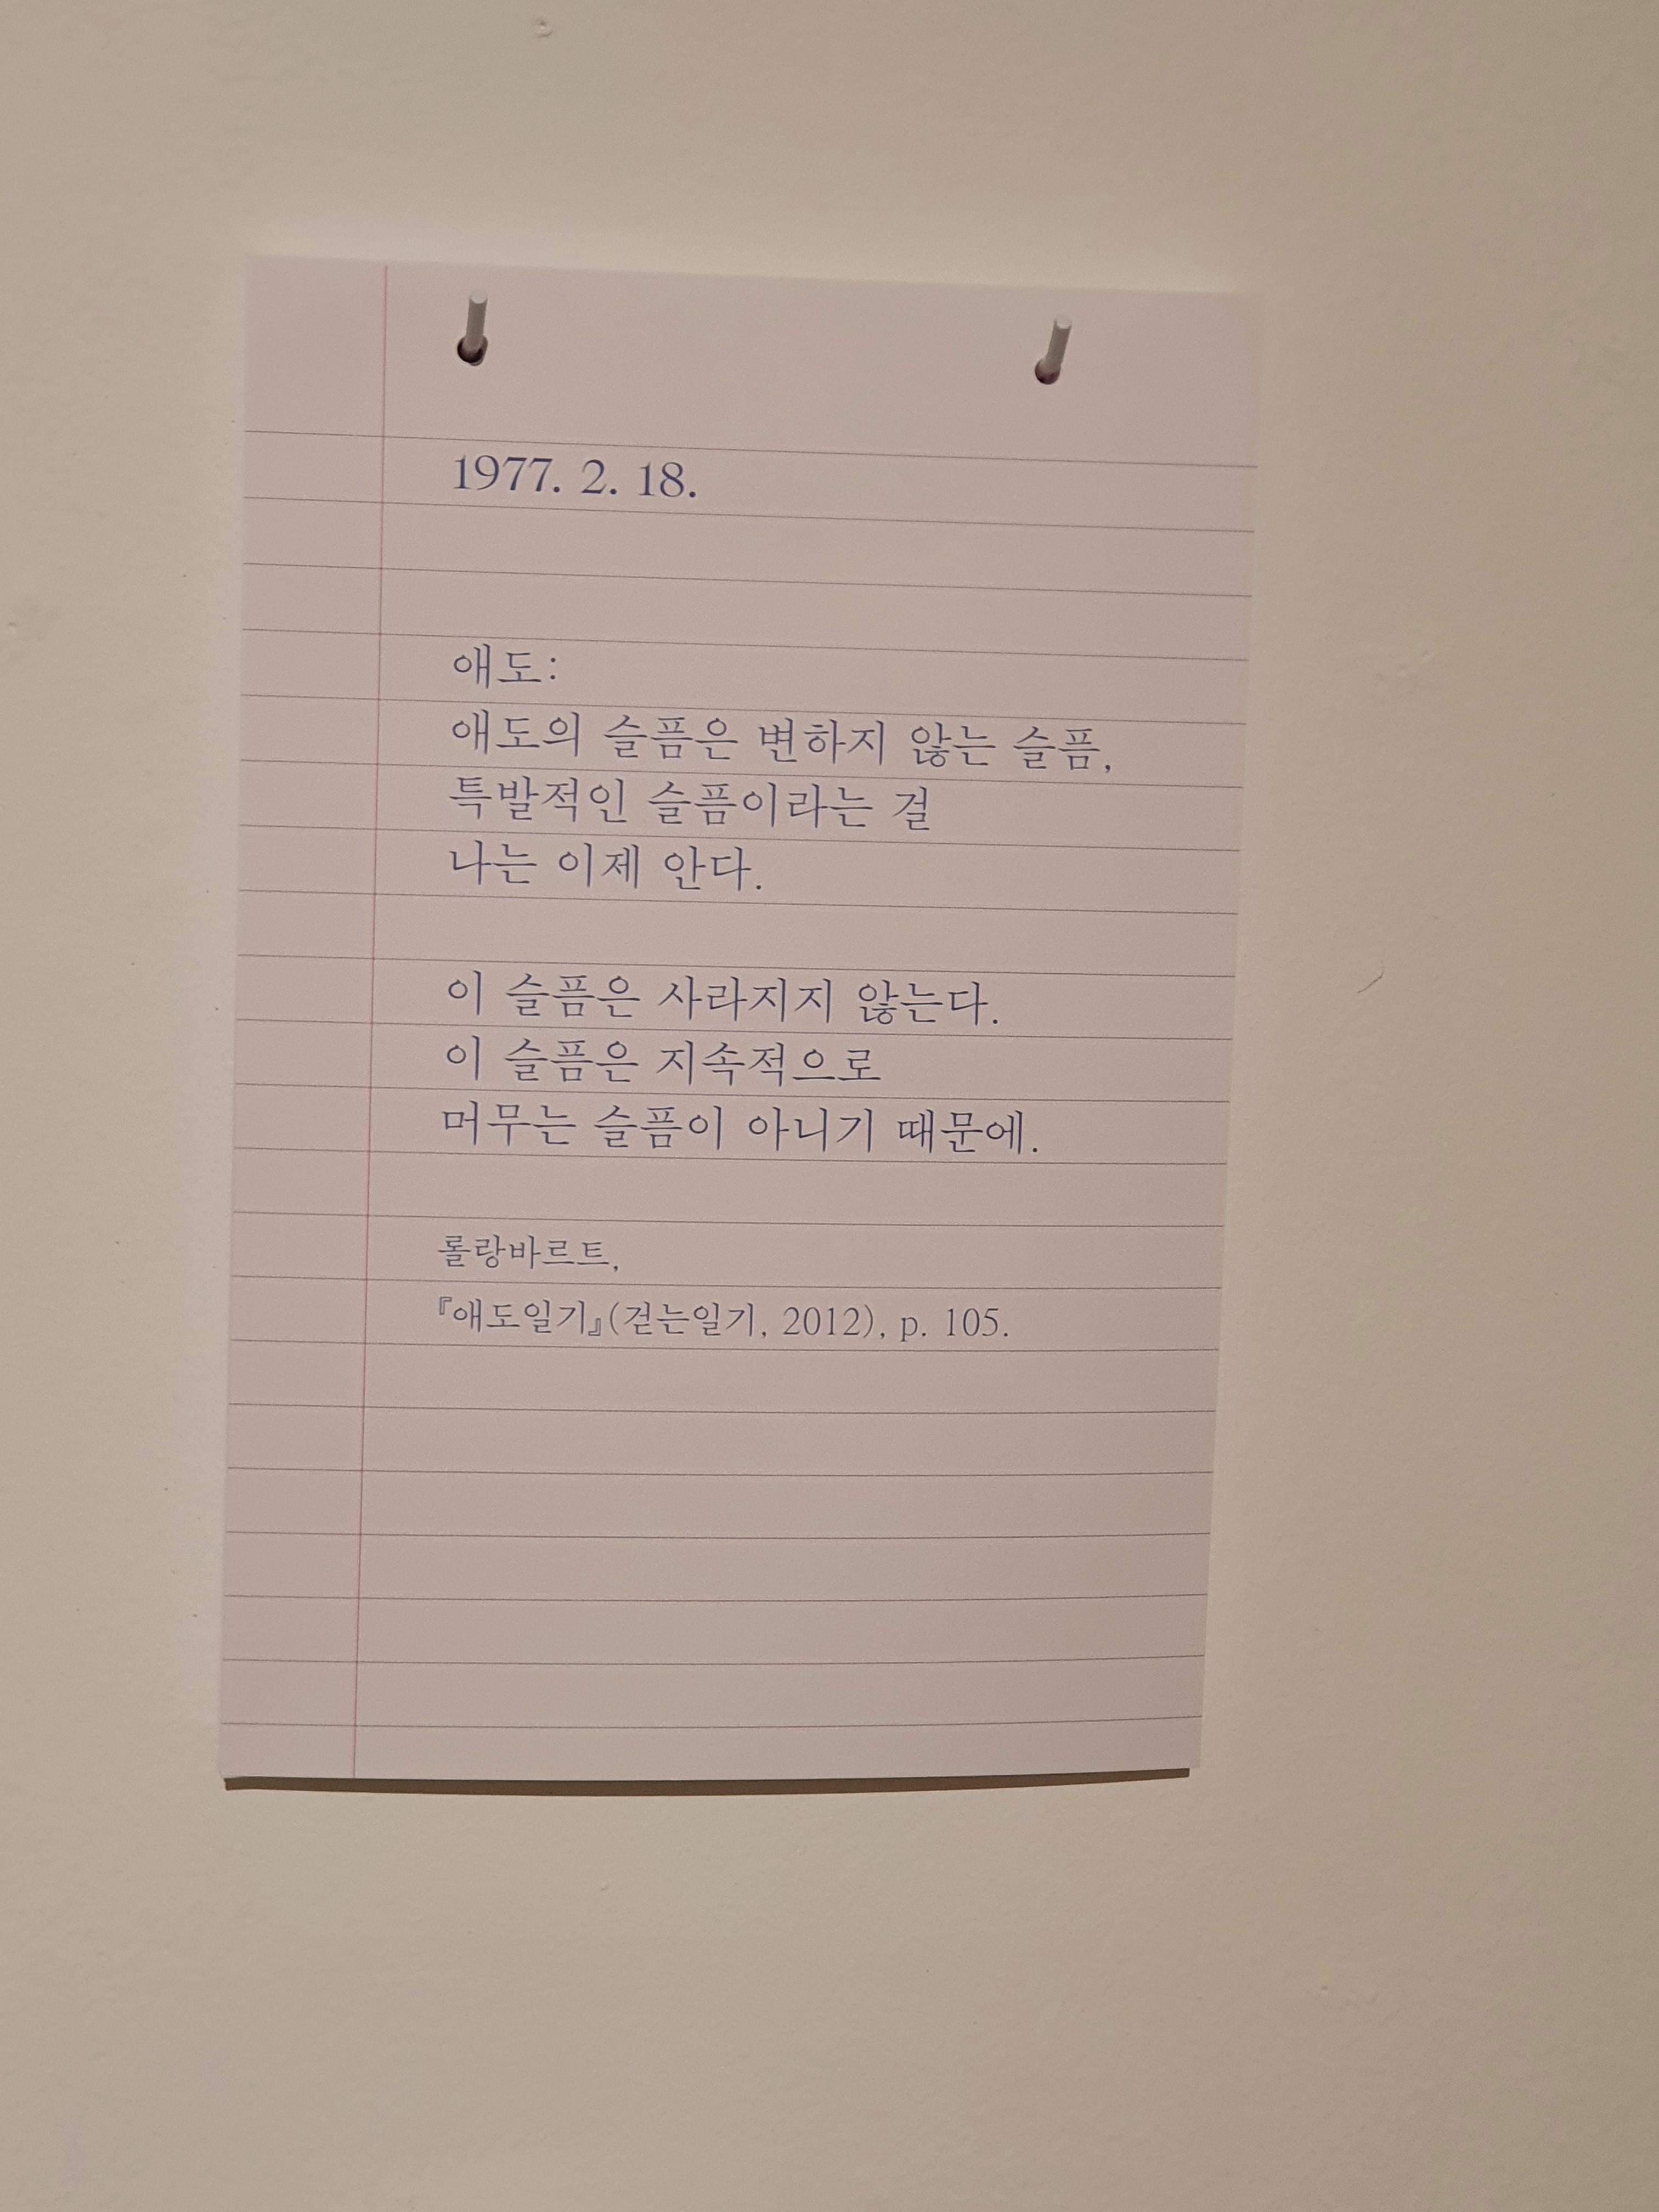 1977. 2. 18.
애도:
애도의 슬픔은 변하지 않는 슬픔,
특발적인 슬픔이라는 걸
나는 이제 안다.
이 슬픔은 사라지지 않는다.
이 슬픔은 지속적으로
머무는 슬픔이 아니기 때문에.
롤랑바르트,
『애도일기』(걷는일기, 2012), p. 105.